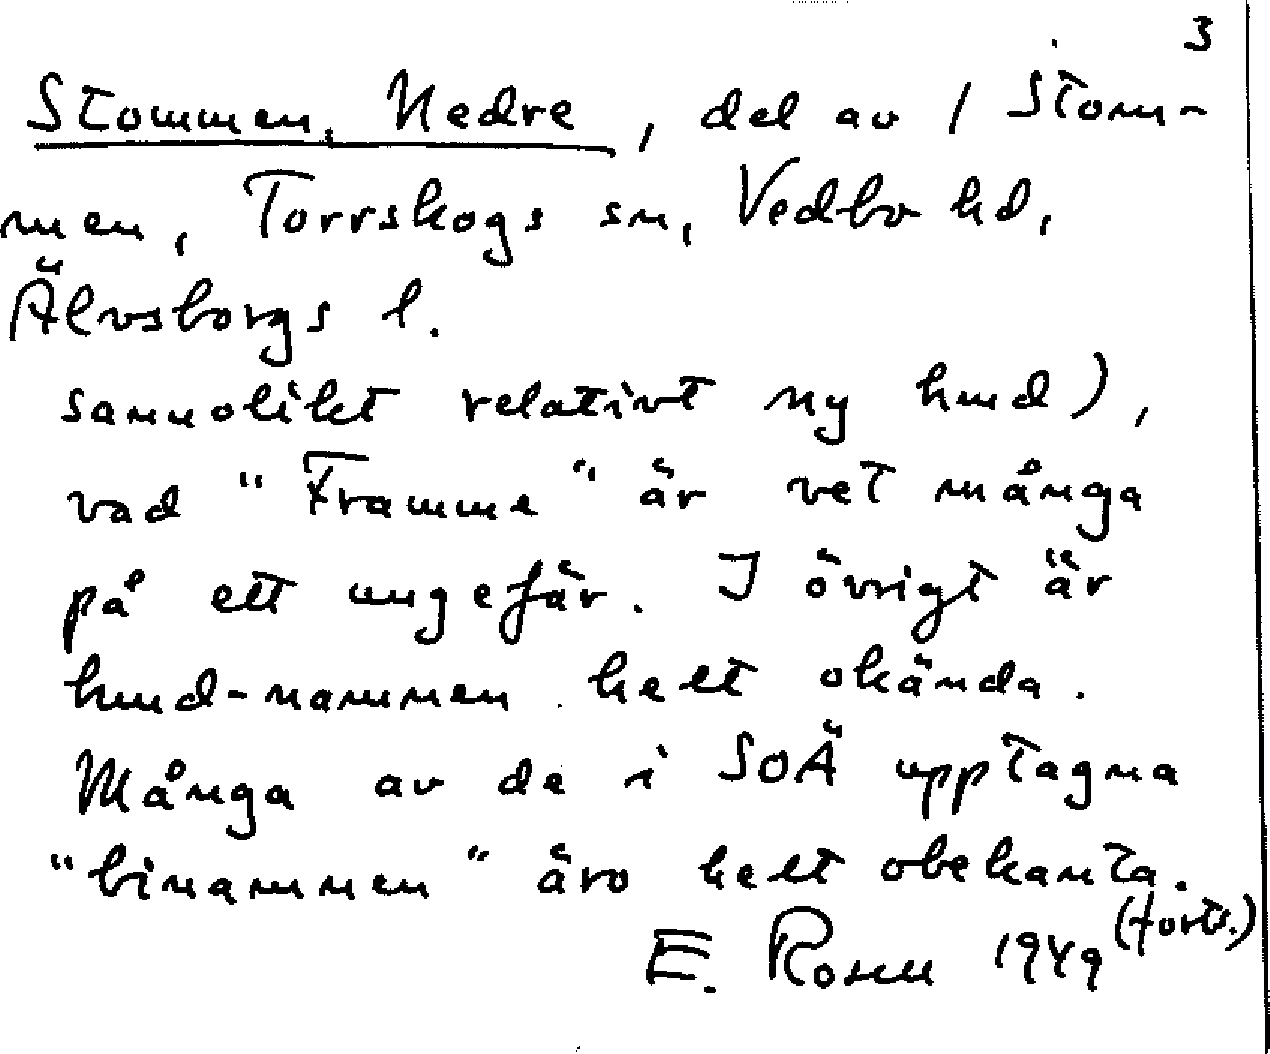 3
Stommen, Nedre, del av 1 Stom-
men, Torrskogs sn, Vedbo hd,
Älvsborgs l.
sannolikt relativt ny hmd),
vad "Framme" är vet många
på ett ungefär. I övrigt är
hmd-namnen helt okända.
Många av de i SOÄ upptagna
"binamnen" äro helt obekanta.
(forts.)
E. Rosell 1949